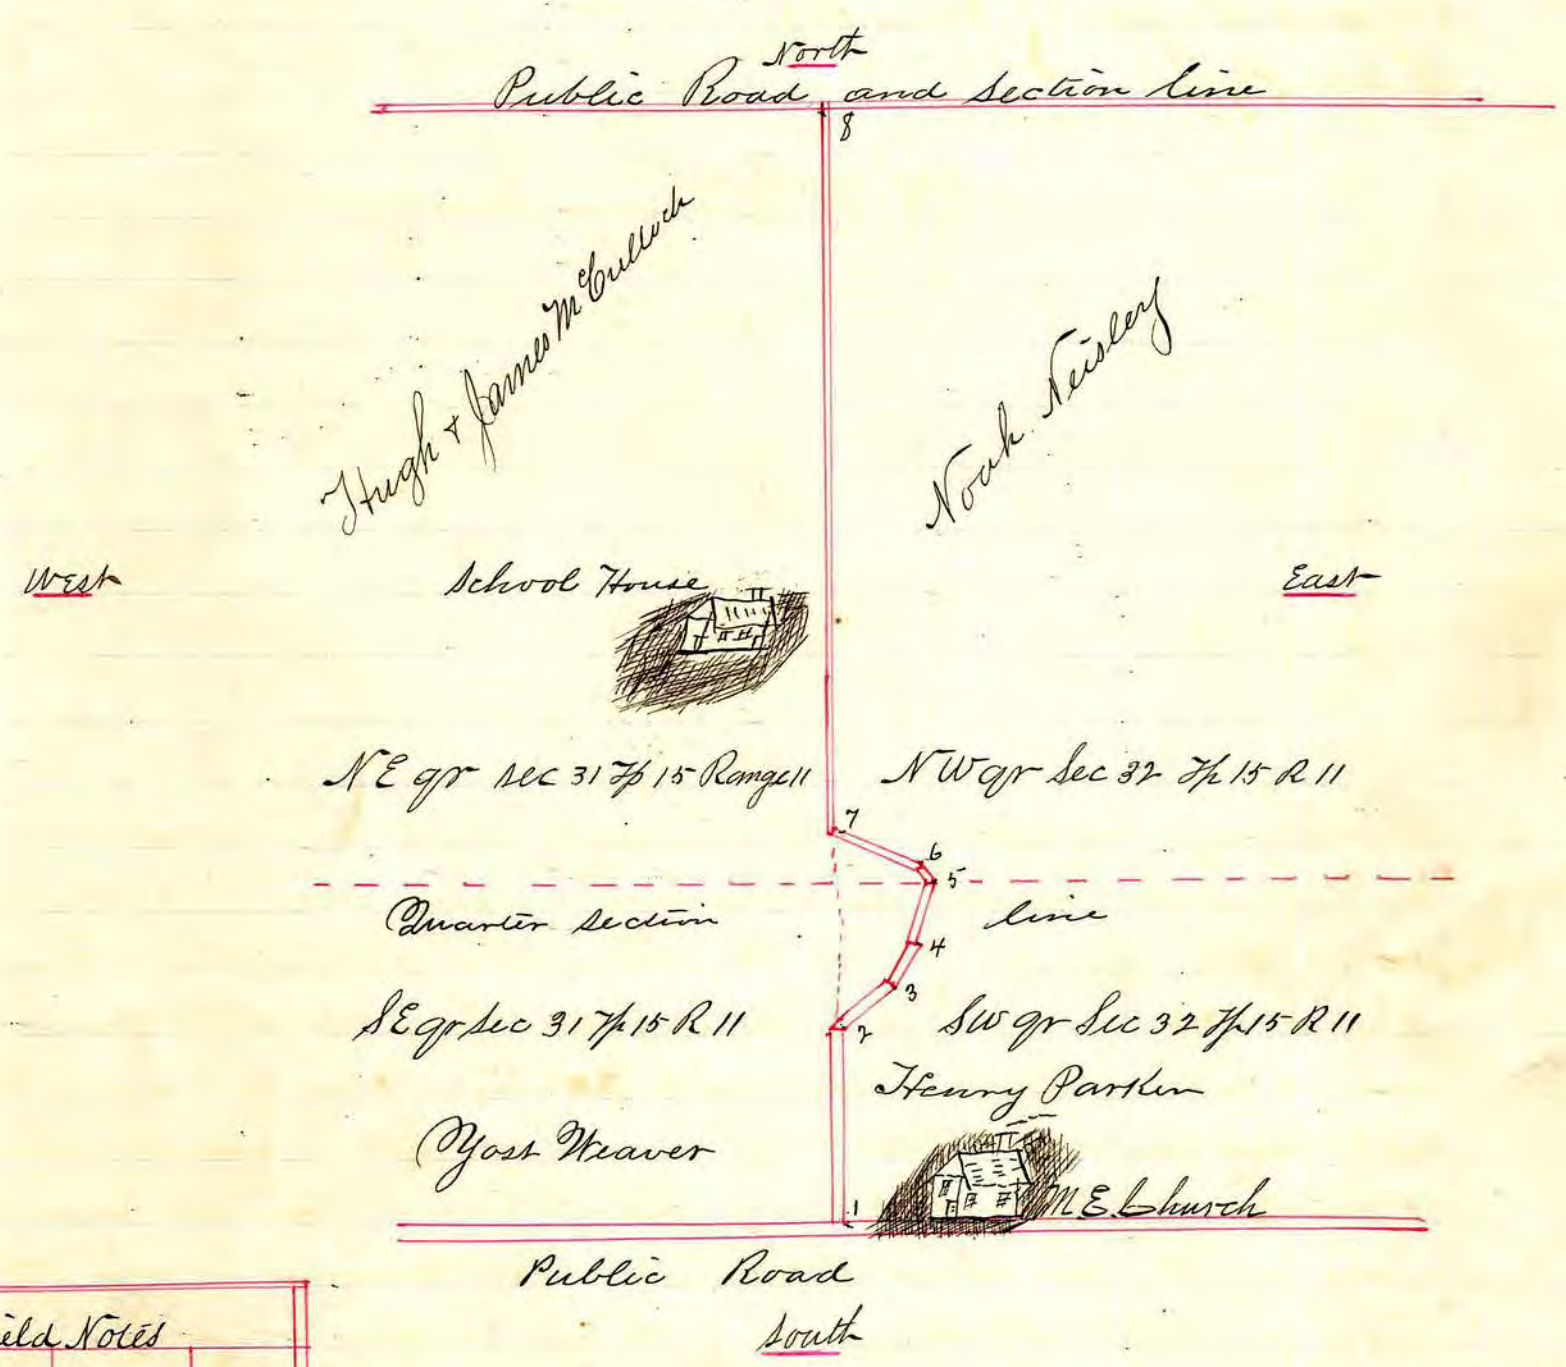 North
Public Road and Section line
8
Hugh & James McCulloch
Noah Neisley
West
School House
East
NE qr sec 31 Tp 15 Range 11
NW qr Sec 32 Tp 15 R 11
7
6
5
Quarter Section line
4
3
SE qr Sec 31 Tp 15 R 11
2
SW qr Sec 32 Tp 15 R 11
Henry Parker
Yost Weaver
1
M E Church
Public Road
South
eld Notes